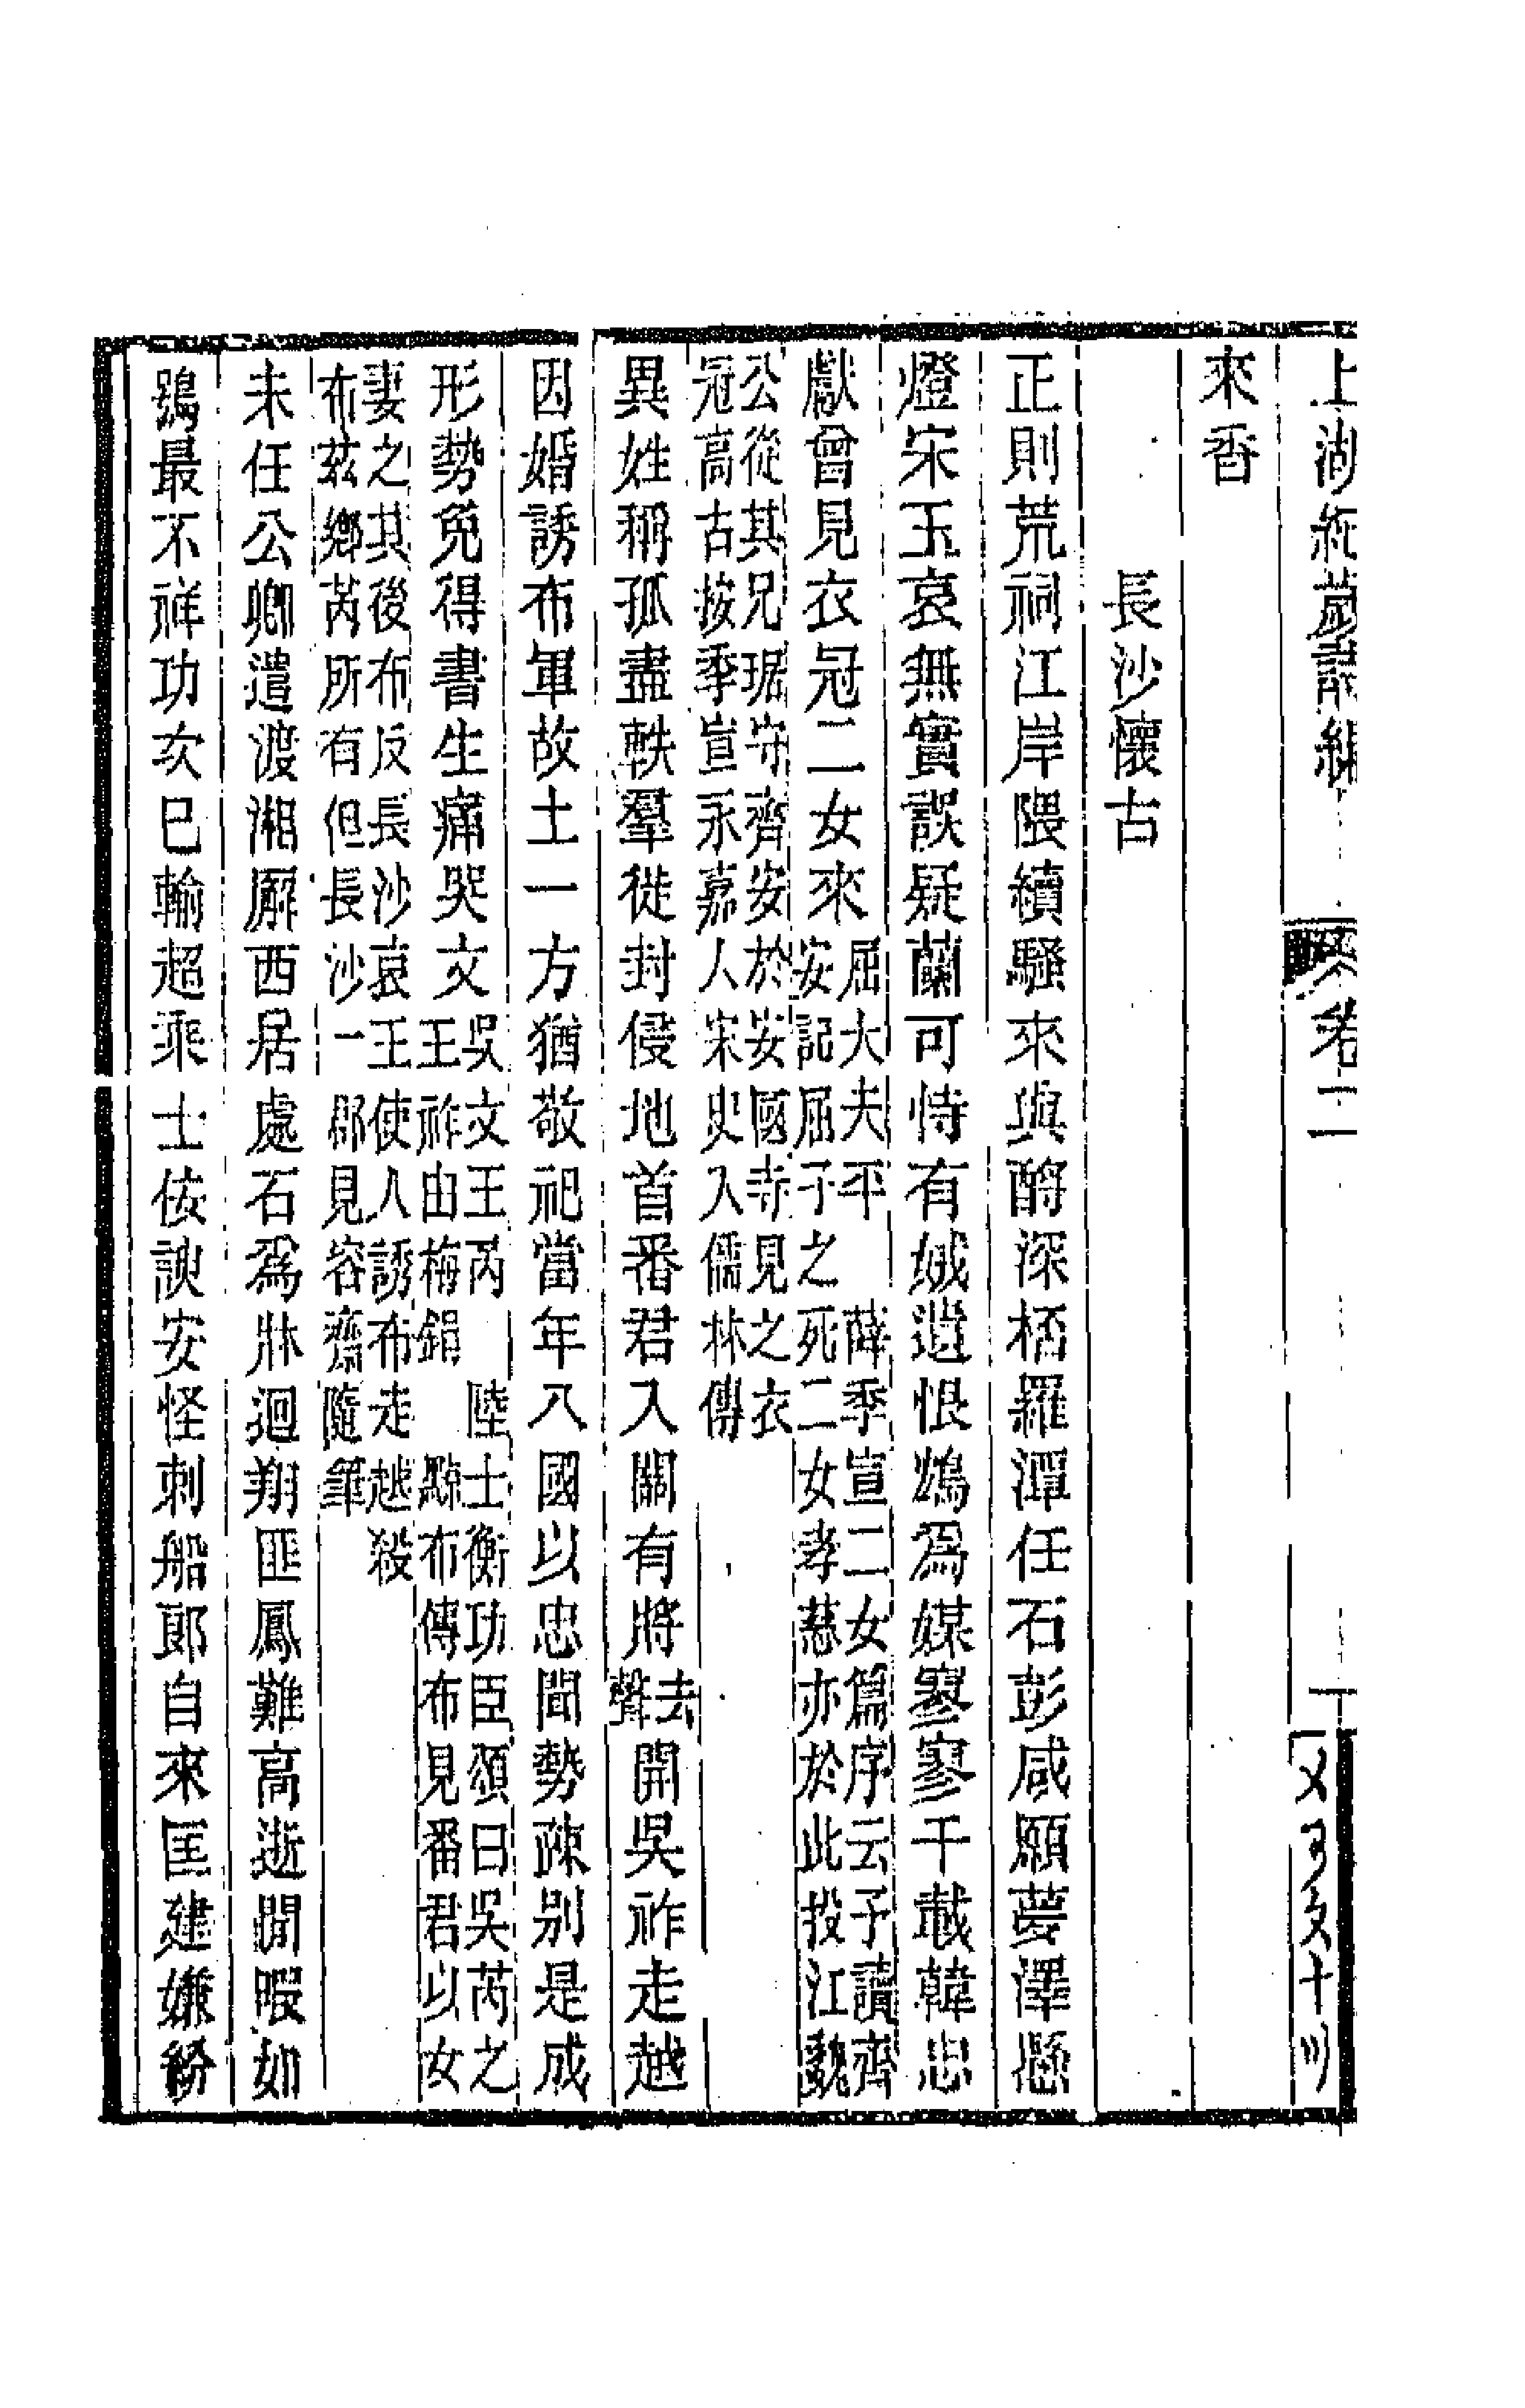 上湖紀歲詩編　卷二
來香
長沙懷古
正則荒祠江岸隈續騷來與酹深桮羅潭任石彭咸願夢澤懸
燈宋玉哀無實誤疑蘭可恃有娀遺恨鴆爲媒寥寥千載韓忠
獻曾見衣冠二女來
屈大夫平　薛季宣二女篇序云予讀齊
安記屈子之死二女孝慈亦於此投江魏
公從其兄琚守齊安於安國寺見之衣
冠高古按季宣永嘉人宋史入儒林傳
異姓稱孤盡軼羣徙封侵地首番君入關有將去聲開吳祚走越
因婚誘布軍故土一方猶敬祀當年八國以忠聞勢疎別是成
形勢免得書生痛哭文
吳文王芮　陸士衡功臣頌曰吳芮之
王祚由梅鋗　黥布傳布見番君以女
妻之其後布反長沙哀王使人誘布走越殺
布茲鄉芮所有但長沙一郡見容齋隨筆
未任公卿遣渡湘廨西居處石爲牀迴翔匪鳳難高逝閒暇如
鴞最不祥功次已輸超乘士佞諛安怪刺船郎自來匡建嫌紛